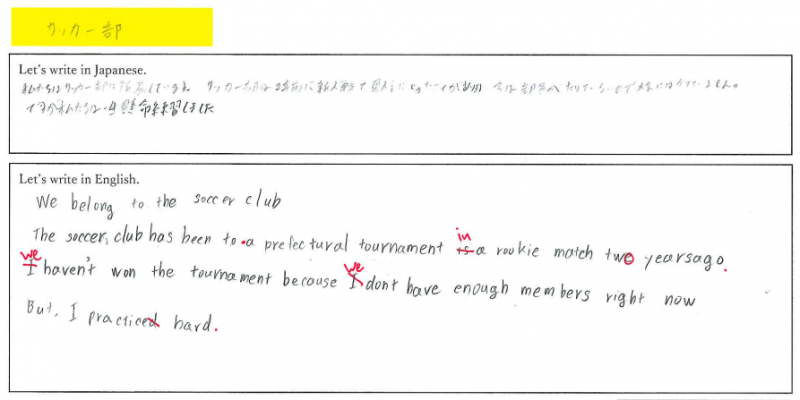 サッカー部
Let's write in Japanese.
私たちはサッカー部に所属しています。 サッカー部は2年前に新人戦で県大会に
ですが私たちは一生懸命練習しました
Let's write in English.
We belong to the soccer club
The soccer, club has been to a prefectural tournament is in a rookie match two years ago.
I we haven't won the tournament because I we don't have enough members right now
But, I practiced hard.